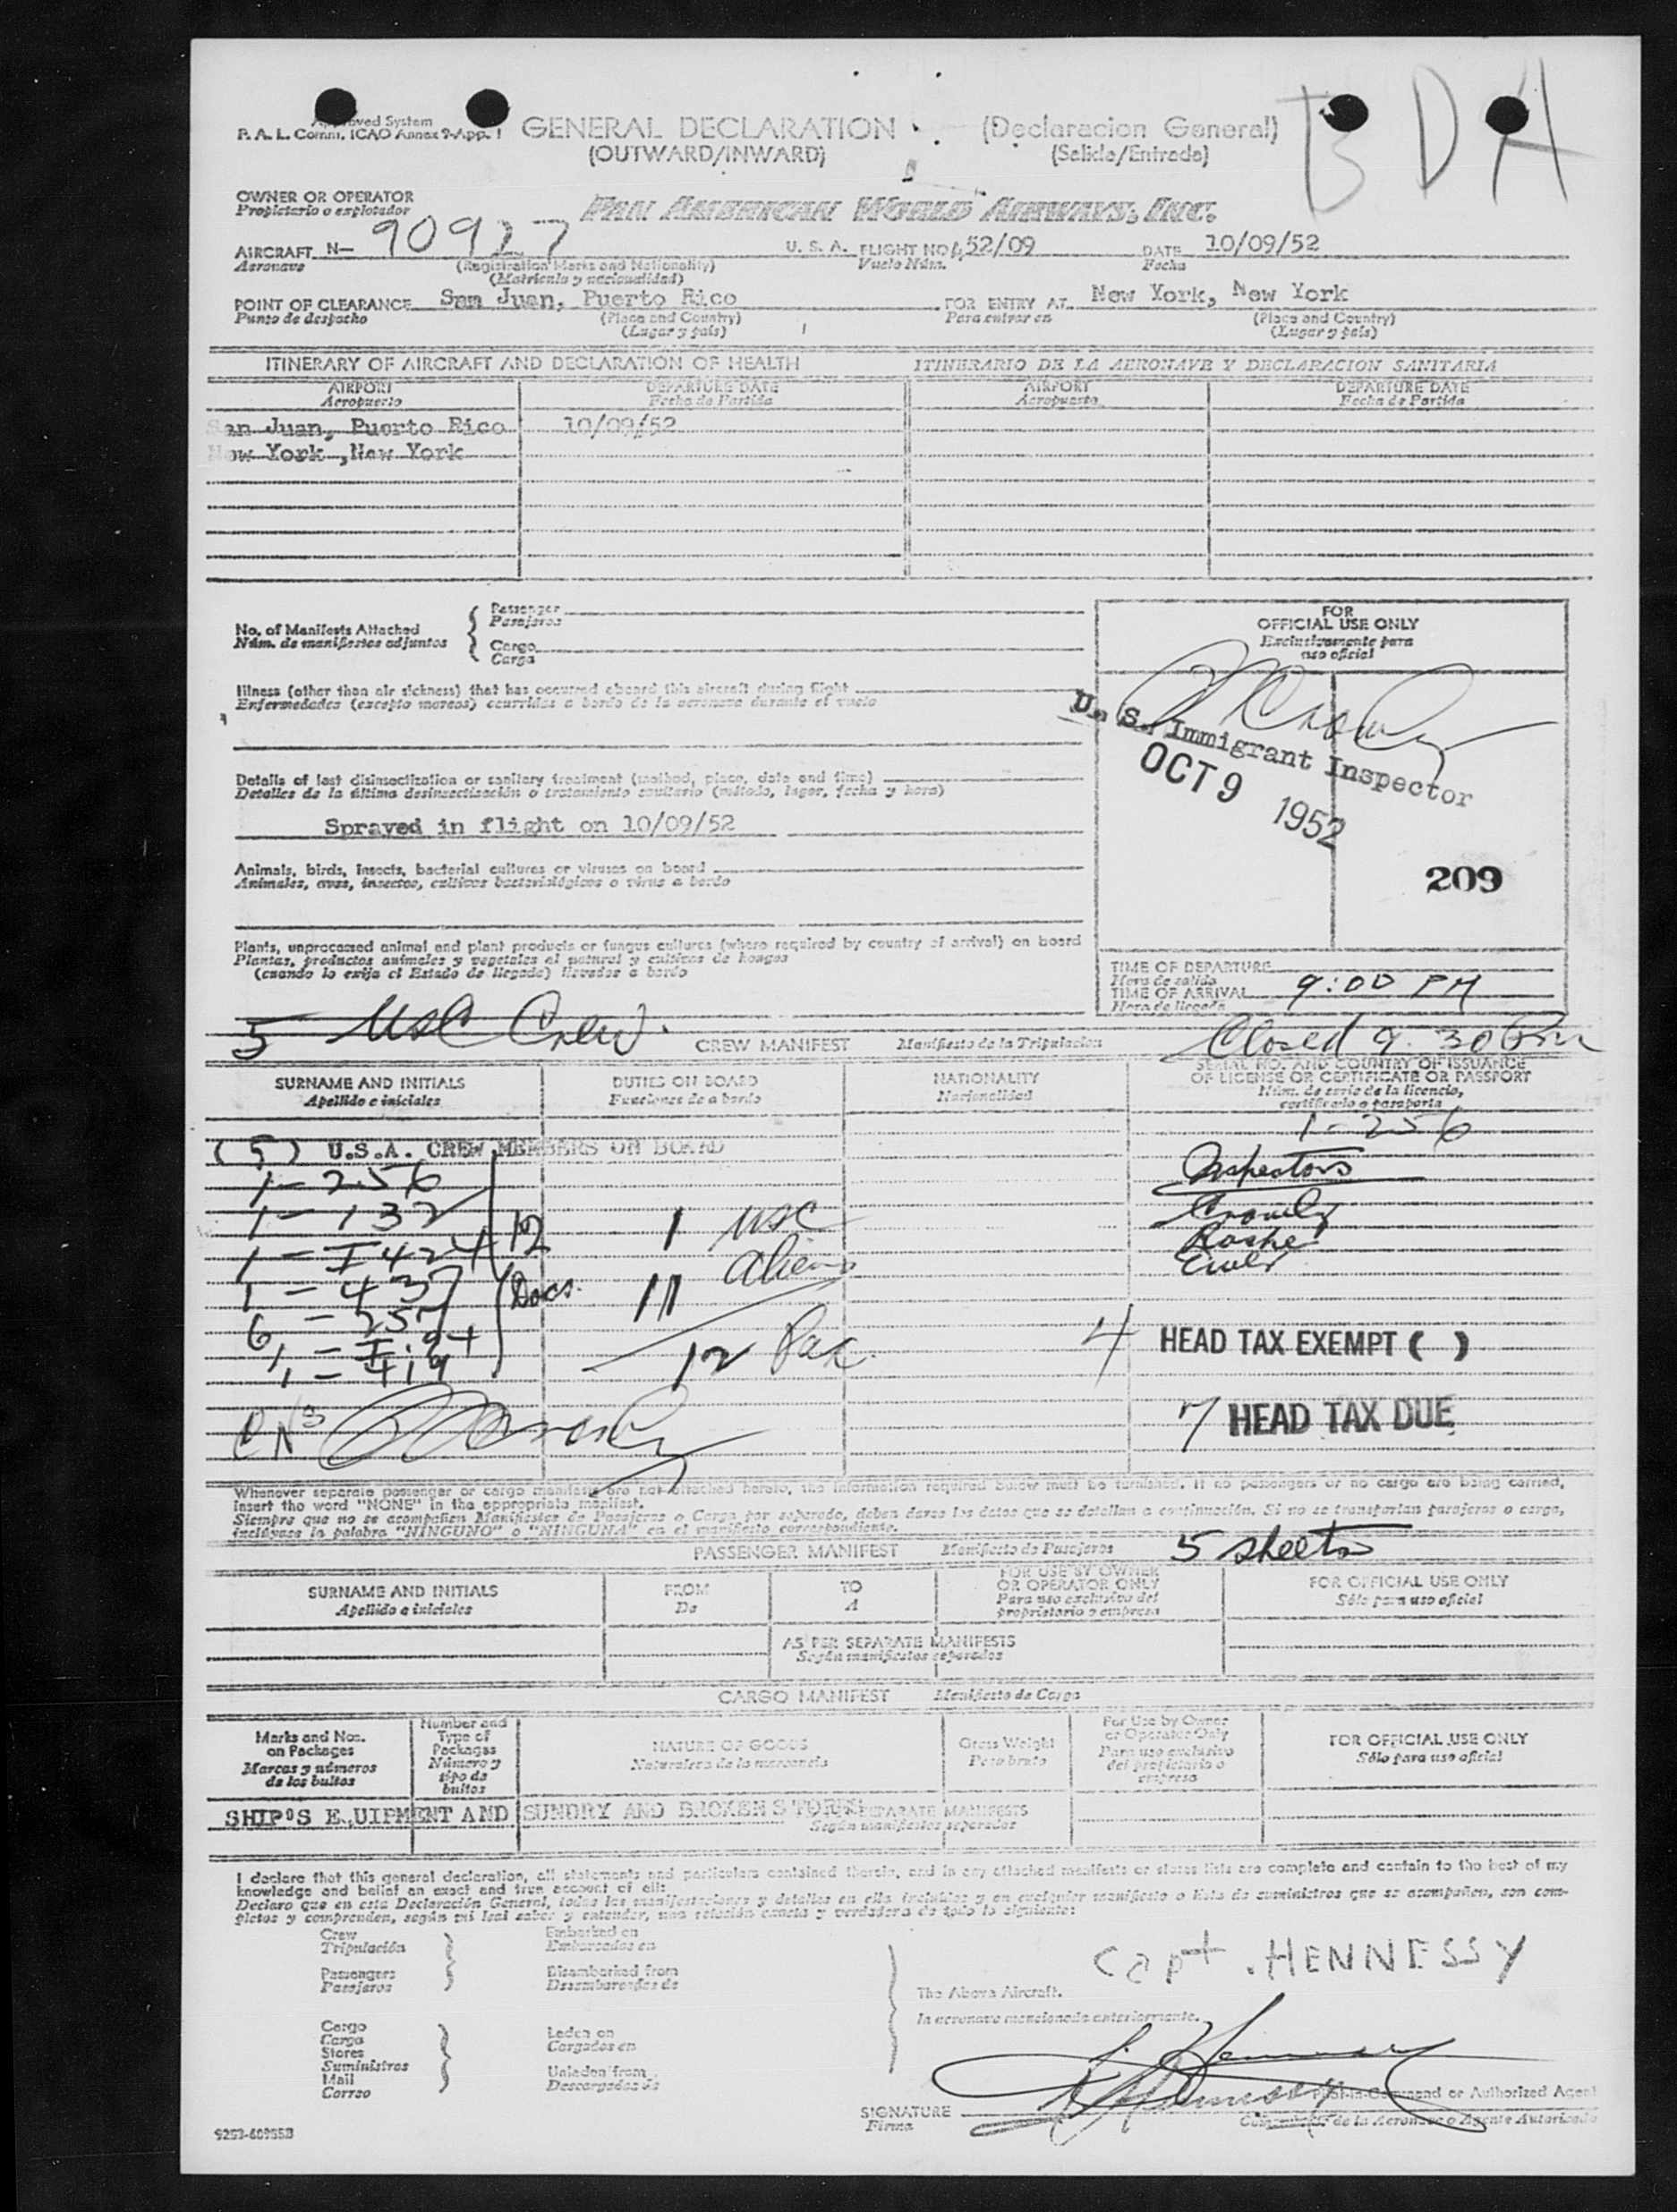 B D A
Approved System
P. A. L. Comm. ICAO Annex 9-App. 1
GENERAL DECLARATION (Declaracion General)
(OUTWARD/INWARD) (Salida/Entrada)
OWNER OR OPERATOR
Propietario o explotador
PAN AMERICAN WORLD AIRWAYS, INC.
AIRCRAFT N- 90927 U. S. A. FLIGHT NO. 52/09 DATE 10/09/52
Aeronave (Registration Marks and Nationality) Vuelo Núm. Fecha
(Matricula y nacionalidad)
POINT OF CLEARANCE San Juan, Puerto Rico FOR ENTRY AT New York, New York
Punto de despacho (Place and Country) Para entrar en (Place and Country)
(Lugar y país) (Lugar y país)
ITINERARY OF AIRCRAFT AND DECLARATION OF HEALTH ITINERARIO DE LA AERONAVE Y DECLARACION SANITARIA
AIRPORT DEPARTURE DATE AIRPORT DEPARTURE DATE
Aeropuerto Fecha de Partida Aeropuerto Fecha de Partida
San Juan, Puerto Rico 10/09/52
New York ,New York
No. of Manifests Attached
Núm. de manifiestos adjuntos
Passenger
Pasajeros
Cargo
Carga
FOR
OFFICIAL USE ONLY
Exclusivamente para
uso oficial
Illness (other than air sickness) that has occurred aboard this aircraft during flight
Enfermedades (excepto mareos) ocurridas a bordo de la aeronave durante el vuelo
U. S. Immigrant Inspector
OCT 9 1952
209
Details of last disinsectization or sanitary treatment (method, place, date and time)
Detalles de la última desinsectización o tratamiento sanitario (método, lugar, fecha y hora)
Sprayed in flight on 10/09/52
Animals, birds, insects, bacterial cultures or viruses on board
Animales, aves, insectos, cultivos bacteriológicos o virus a bordo
Plants, unprocessed animal and plant products or fungus cultures (where required by country of arrival) on board
Plantas, productos animales y vegetales al natural y cultivos de hongos
(cuando lo exija el Estado de llegada) llevados a bordo
TIME OF DEPARTURE
Hora de salida
TIME OF ARRIVAL 9:00 PM
Hora de llegada
5 USC Crew. Closed 9:30 Pm
CREW MANIFEST Manifiesto de la Tripulacion
SURNAME AND INITIALS DUTIES ON BOARD NATIONALITY SERIAL NO. AND COUNTRY OF ISSUANCE
OF LICENSE OR CERTIFICATE OR PASSPORT
Apellido e iniciales Funciones de a bordo Nacionalidad Núm. de serie de la licencia,
certificado o pasaporte
1-256
(5) U.S.A. CREW MEMBERS ON BOARD
1 - 256 Inspectors
1 - 132 1 USC Crowley
1 - I 424 12 Aliens Roshe
1 - 437 Docs. 11
6 - 257
1 - I-94 12 Pax. 4 HEAD TAX EXEMPT ( )
1 - 419
7 HEAD TAX DUE
Whenever separate passenger or cargo manifests are not attached hereto, the information required below must be furnished. If no passengers or no cargo are being carried,
insert the word "NONE" in the appropriate manifest.
Siempre que no se acompañen Manifiestos de Pasajeros o Carga por separado, deben darse los datos que se detallan a continuación. Si no se transportan pasajeros o carga,
inclúyase la palabra "NINGUNO" o "NINGUNA" en el manifiesto correspondiente.
PASSENGER MANIFEST Manifiesto de Pasajeros 5 sheets
SURNAME AND INITIALS FROM TO FOR USE BY OWNER
OR OPERATOR ONLY FOR OFFICIAL USE ONLY
Apellido e iniciales De A Para uso exclusivo del
propietario o empresa Sólo para uso oficial
AS PER SEPARATE MANIFESTS
Según manifiestos separados
CARGO MANIFEST Manifiesto de Carga
Marks and Nos.
on Packages
Marcas y números
de los bultos
Number and
Type of
Packages
Número y
tipo de
bultos
NATURE OF GOODS
Naturaleza de la mercancía
Gross Weight
Peso bruto
For Use by Owner
or Operator Only
Para uso exclusivo
del propietario o
empresa
FOR OFFICIAL USE ONLY
Sólo para uso oficial
SHIP'S E.UIPMENT AND SUNDRY AND BROKEN STORES SEPARATE MANIFESTS
Según manifiestos separados
I declare that this general declaration, all statements and particulars contained therein, and in any attached manifests or stores lists are complete and contain to the best of my
knowledge and belief an exact and true account of all:
Declaro que en esta Declaración General, todas las manifestaciones y detalles en ella incluídos y en cualquier manifiesto o lista de suministros que se acompañen, son com-
pletos y comprenden, según mi leal saber y entender, una relación exacta y verdadera de todo lo siguiente:
Crew
Tripulación
Passengers
Pasajeros
Embarked on
Embarcados en
Disembarked from
Desembarcados de
Capt. HENNESSY
The Above Aircraft.
La aeronave mencionada anteriormente.
Cargo
Carga
Stores
Suministros
Mail
Correo
Laden on
Cargados en
Unladen from
Descargados de
SIGNATURE
Firma
Pilot-in-Command or Authorized Agent
Comandante de la Aeronave o Agente Autorizado